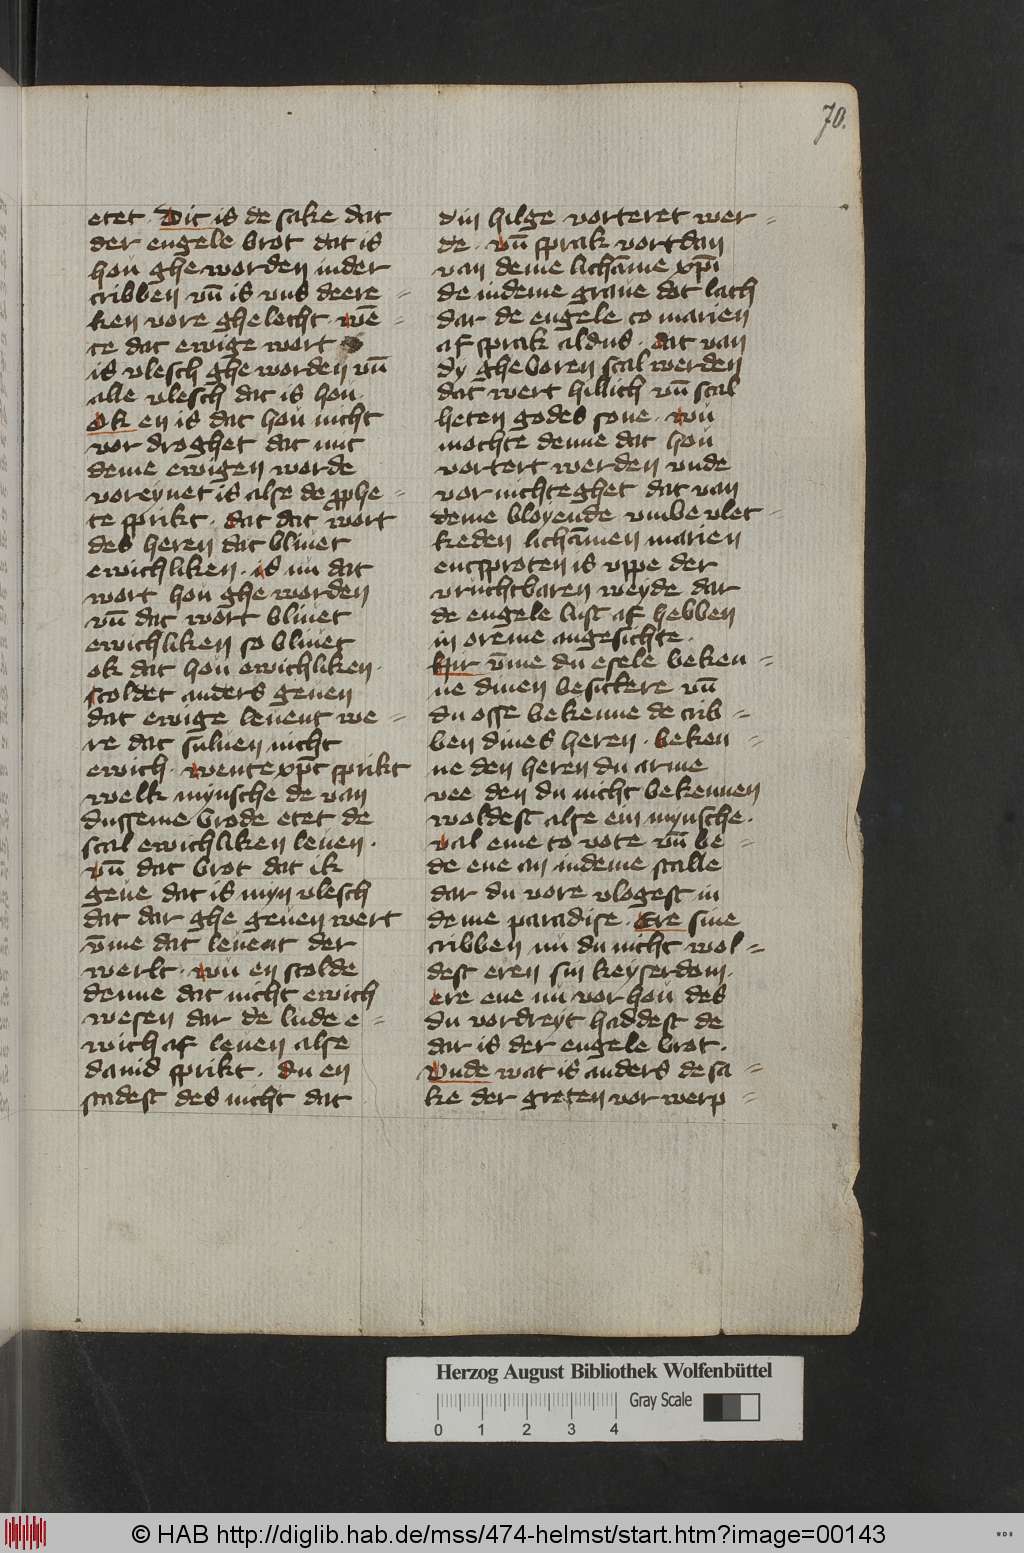 70.
etet · Dit is de sake dat
der engele brot dat is
hoü ghe worden in der
cribben vn̄ is vns deere =
ken vore ghelecht · wē =
te dat ewige wort
is vlesch ghe worden vn̄
alle vlesch dat is hoü ·
Ok en is dat hoü nicht
vor droghet dat mit
deme ewigen worde
voreynet is alse de ꝓphe =
te sprikt · dat dat wort
des heren dat bliuet
ewichliken · is nü dat
wort hoü ghe worden
vn̄ dat wort bliuet
ewichliken so bliuet
ok dat hoü ewichliken ·
scoldet anders geuen
dat ewige leuent we =
re dat suluen nicht
ewich · wente xp̄c sprikt
welk mynsche de van
dusseme brode etet de
scal ewichliken leuen ·
vn̄ dat brot dat ik
geue dat is myn vlesch
dat dar ghe geuen wert
v̄me dat leuent der
werlt · wü en scolde
denne dat nicht ewich
wesen dar de lude e =
wich af leuen alse
dauid sprikt · du en
stadest des nicht dat
din hilge vorteret wer =
de · vn̄ sprak vort dan
van deme lichāme xp̄i
de in deme graue dot lach
dar de engele to marien
af sprak aldus · dat van
dy ghe boren scal werden
dat wert hillich vn̄ scal
heten godes sone · wü
mochte denne dat hoü
vortert werden vnde
vor nichteghet dat van
deme bloyende vnbe vlet =
keden lichāmen marien
entsproten is vppe der
vruchtbaren weyde dar
de engele lust af hebben
in oreme angesichte ·
hir v̄me du esele beken =
ne dinen besittere vn̄
du osse bekenne de crib =
ben dines heren · beken =
ne den heren du arme
vee den du nicht bekennen
woldest alse ein mynsche ·
val eme to vote vn̄ be =
de ene an in deme stalle
dar du vore vlogest in
deme paradise · Ere sine
cribben nü du nicht wol =
dest eren sin keyserdom ·
ere ene nü vor hoü des
du vordreyt haddest de
dar is der engele brot ·
Vnde wat is anders de sa =
ke der groten vor werp =
Herzog August Bibliothek Wolfenbüttel
Gray Scale
0 1 2 3 4
© HAB http://diglib.hab.de/mss/474-helmst/start.htm?image=00143